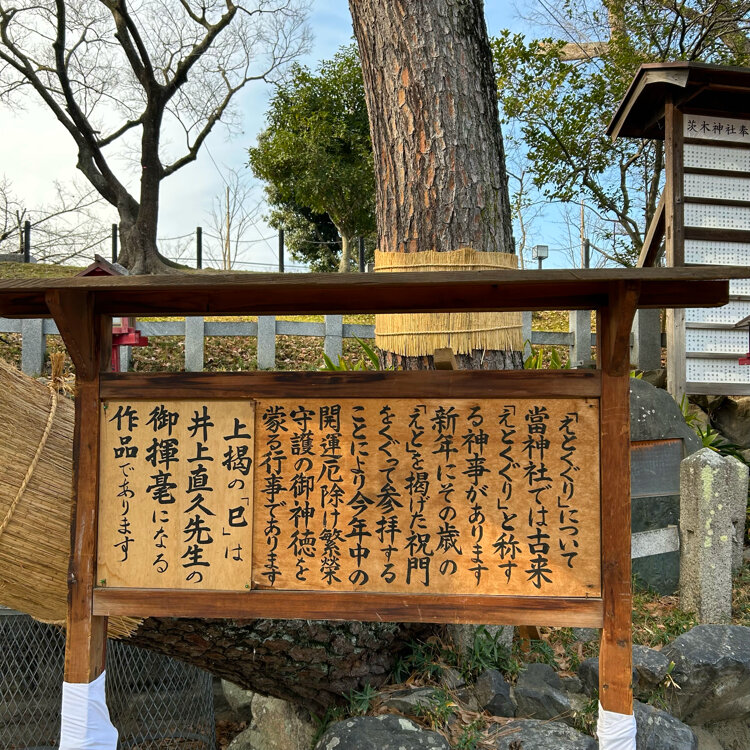 「えとくぐり」について
當神社では古来
「えとくぐり」と称す
る神事があります
新年にその歳の
「えと」を掲げた祝門
をくぐって参拝する
ことにより今年中の
開運厄除け繁榮
守護の御神徳を
蒙る行事であります
上掲の「巳」は
井上直久先生の
御揮毫になる
作品であります
茨木神社奉